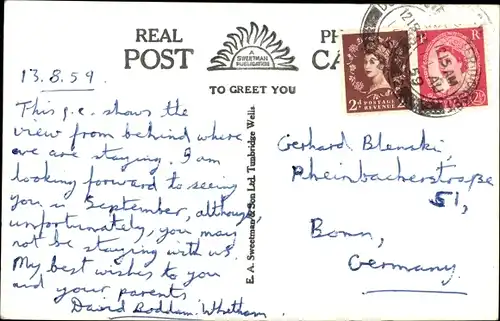 REAL PH
POST CA
A
SWEETMAN
PUBLICATION
TO GREET YOU
13.8.59.
This p.c. shows the
view from behind where
we are staying. I am
looking forward to seeing
you in September, although
unfortunately, you may
not be staying with us.
My best wishes to you
and your parents
David Boddam-Whetham.
E. A. Sweetman & Son Ltd. Tunbridge Wells
2d POSTAGE 2
REVENUE
R
2½
15 AM
AU
59
Gerhard Blenski,
Rheinbacherstraße
51,
Bonn,
Germany.